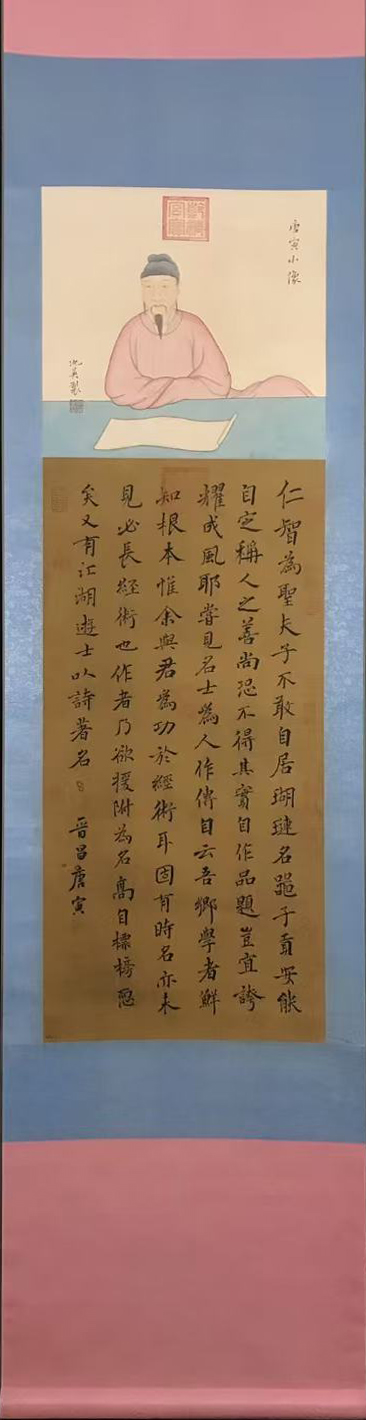 唐寅小像
沈英製
仁智為聖夫子不敢自居瑚璉名器子貢安能
自定稱人之善尚恐不得其實自作品題豈宜誇
耀成風耶嘗見名士為人作傳自云吾鄉學者鮮
知根本惟余與君為功於經術耳固有時名亦未
見必長經術也作者乃欲援附為名高自標榜慝
矣又有江湖遊士以詩著名
晉昌唐寅